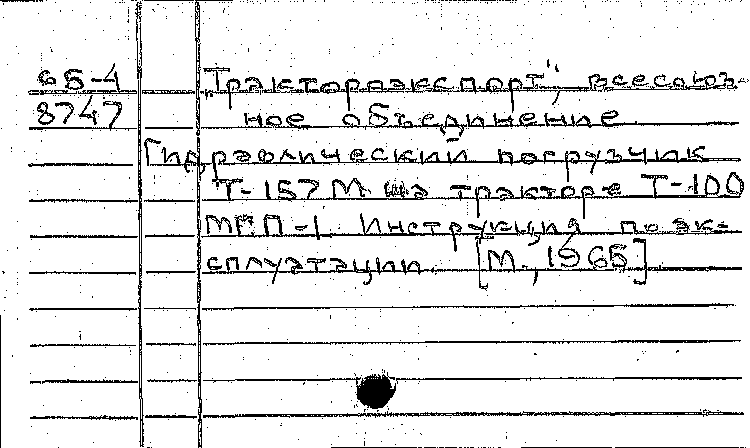 65-4
8747
„Трактороэкспорт", всесоюз-
ное объединение
Гидравлический погрузчик
Т-157М на тракторе Т-100
МГП-1. Инструкция по эк-
сплуатации. [М., 1965]